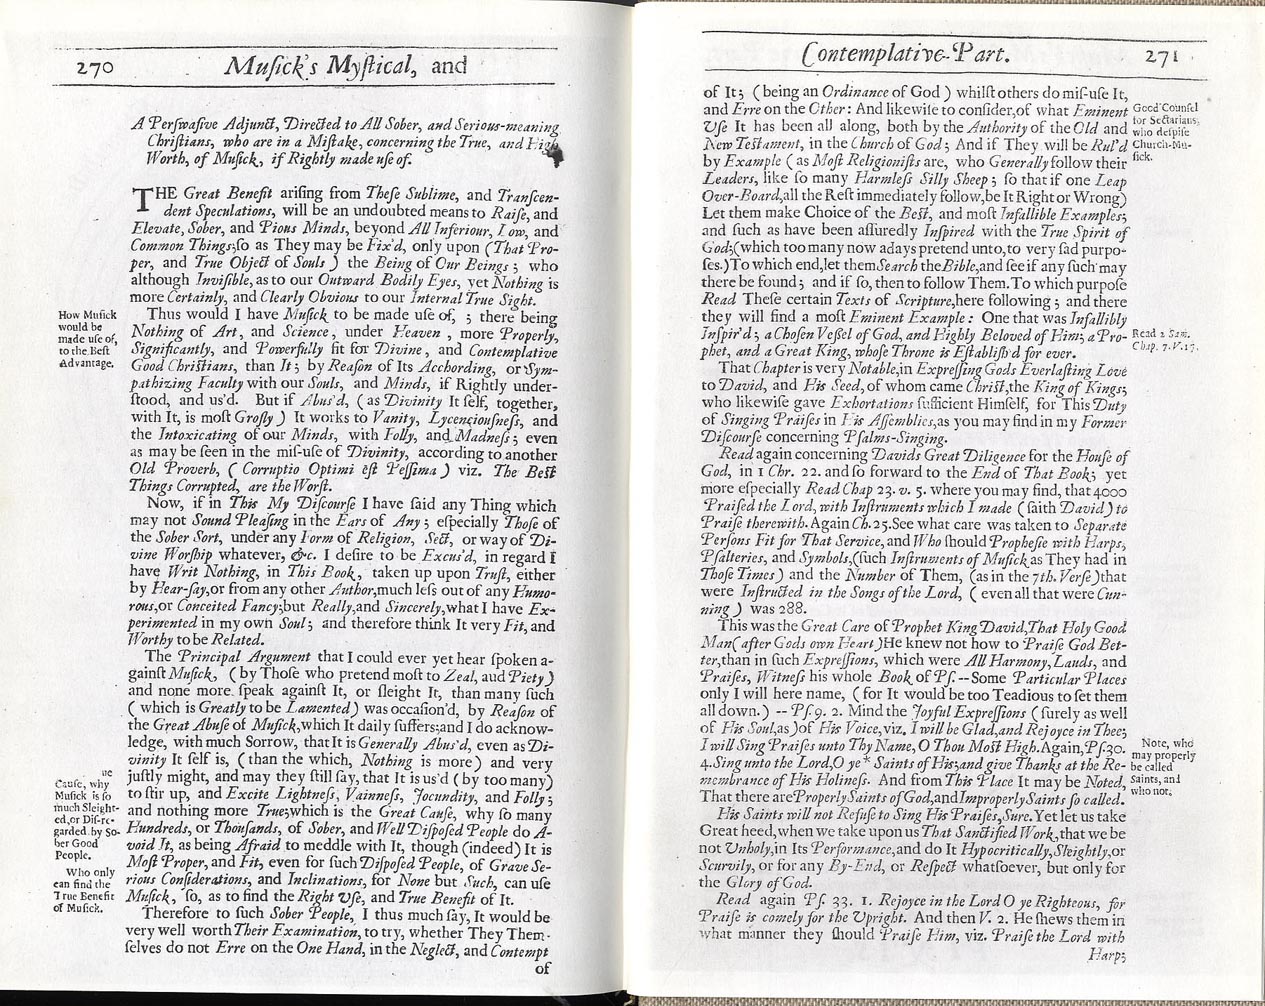 270 Muſick's Myſtical, and
A Perſwaſive Adjunct, Directed to All Sober, and Serious-meaning
Chriſtians, who are in a Miſtake, concerning the True, and High
Worth, of Muſick, if Rightly made uſe of.
THE Great Benefit ariſing from Theſe Sublime, and Tranſcen-
dent Speculations, will be an undoubted means to Raiſe, and
Elevate, Sober, and Pious Minds, beyond All Inferiour, Low, and
Common Things; ſo as They may be Fix'd, only upon (That Pro-
per, and True Object of Souls) the Being of Our Beings; who
although Inviſible, as to our Outward Bodily Eyes, yet Nothing is
more Certainly, and Clearly Obvious to our Internal True Sight.
How Muſick
would be
made uſe of,
to the Beſt
Advantage.
Thus would I have Muſick to be made uſe of, ; there being
Nothing of Art, and Science, under Heaven, more Properly,
Significantly, and Powerfully fit for Divine, and Contemplative
Good Chriſtians, than It; by Reaſon of Its Acchording, or Sym-
pathizing Faculty with our Souls, and Minds, if Rightly under-
ſtood, and us'd. But if Abus'd, (as Divinity It ſelf, together,
with It, is moſt Groſly) It works to Vanity, Lycenciouſneſs, and
the Intoxicating of our Minds, with Folly, and Madneſs; even
as may be ſeen in the miſ-uſe of Divinity, according to another
Old Proverb, (Corruptio Optimi eſt Peſſima) viz. The Beſt
Things Corrupted, are the Worſt.
Now, if in This My Diſcourſe I have ſaid any Thing which
may not Sound Pleaſing in the Ears of Any; eſpecially Thoſe of
the Sober Sort, under any Form of Religion, Sect, or way of Di-
vine Worſhip whatever, &c. I deſire to be Excus'd, in regard I
have Writ Nothing, in This Book, taken up upon Truſt, either
by Hear-ſay, or from any other Author, much leſs out of any Humo-
rous, or Conceited Fancy; but Really, and Sincerely, what I have Ex-
perimented in my own Soul; and therefore think It very Fit, and
Worthy to be Related.
The Principal Argument that I could ever yet hear ſpoken a-
gainſt Muſick, (by Thoſe who pretend moſt to Zeal, aud Piety)
and none more ſpeak againſt It, or ſleight It, than many ſuch
(which is Greatly to be Lamented) was occaſion'd, by Reaſon of
the Great Abuſe of Muſick, which It daily ſuffers; and I do acknow-
ledge, with much Sorrow, that It is Generally Abus'd, even as Di-
vinity It ſelf is, (than the which, Nothing is more) and very
juſtly might, and may they ſtill ſay, that It is us'd (by too many)
to ſtir up, and Excite Lightneſs, Vainneſs, Jocundity, and Folly;
and nothing more True; which is the Great Cauſe, why ſo many
Hundreds, or Thouſands, of Sober, and Well Diſpoſed People do A-
void It, as being Afraid to meddle with It, though (indeed) It is
Moſt Proper, and Fit, even for ſuch Diſpoſed People, of Grave Se-
rious Conſiderations, and Inclinations, for None but Such, can uſe
Muſick, ſo, as to find the Right Uſe, and True Benefit of It.
ue
Cauſe, why
Muſick is ſo
much Sleight-
ed, or Diſ-re-
garded by So-
ber Good
People.
Who only
can find the
True Benefit
of Muſick.
Therefore to ſuch Sober People, I thus much ſay, It would be
very well worth Their Examination, to try, whether They Them-
ſelves do not Erre on the One Hand, in the Neglect, and Contempt
of
Contemplative-Part. 271
of It; (being an Ordinance of God) whilſt others do miſ-uſe It,
and Erre on the Other: And likewiſe to conſider, of what Eminent
Uſe It has been all along, both by the Authority of the Old and
New Teſtament, in the Church of God; And if They will be Rul'd
by Example (as Moſt Religioniſts are, who Generally follow their
Leaders, like ſo many Harmleſs Silly Sheep; ſo that if one Leap
Over-Board, all the Reſt immediately follow, be It Right or Wrong)
Let them make Choice of the Beſt, and moſt Infallible Examples;
and ſuch as have been aſſuredly Inſpired with the True Spirit of
God; (which too many now adays pretend unto, to very ſad purpo-
ſes.) To which end, let them Search the Bible, and ſee if any ſuch may
there be found; and if ſo, then to follow Them. To which purpoſe
Read Theſe certain Texts of Scripture, here following; and there
they will find a moſt Eminent Example: One that was Infallibly
Inſpir'd; a Choſen Veſſel of God, and Highly Beloved of Him; a Pro-
phet, and a Great King, whoſe Throne is Eſtabliſh'd for ever.
Good Counſel
for Sectarians,
who deſpiſe
Church-Mu-
ſick.
Read 2 Sam.
Chap. 7. V. 17.
That Chapter is very Notable, in Expreſſing Gods Everlaſting Love
to David, and His Seed, of whom came Chriſt, the King of Kings;
who likewiſe gave Exhortations ſufficient Himſelf, for This Duty
of Singing Praiſes in His Aſſemblies, as you may find in my Former
Diſcourſe concerning Pſalms-Singing.
Read again concerning Davids Great Diligence for the Houſe of
God, in 1 Chr. 22. and ſo forward to the End of That Book; yet
more eſpecially Read Chap 23. v. 5. where you may find, that 4000
Praiſed the Lord, with Inſtruments which I made (ſaith David) to
Praiſe therewith. Again Ch. 25. See what care was taken to Separate
Perſons Fit for That Service, and Who ſhould Propheſie with Harps,
Pſalteries, and Symbols, (ſuch Inſtruments of Muſick as They had in
Thoſe Times) and the Number of Them, (as in the 7th. Verſe) that
were Inſtructed in the Songs of the Lord, (even all that were Cun-
ning) was 288.
This was the Great Care of Prophet King David, That Holy Good
Man (after Gods own Heart) He knew not how to Praiſe God Bet-
ter, than in ſuch Expreſſions, which were All Harmony, Lauds, and
Praiſes, Witneſs his whole Book of Pſ.--Some Particular Places
only I will here name, (for It would be too Teadious to ſet them
all down.) -- Pſ. 9. 2. Mind the Joyful Expreſſions (ſurely as well
of His Soul, as) of His Voice, viz. I will be Glad, and Rejoyce in Thee;
I will Sing Praiſes unto Thy Name, O Thou Moſt High. Again, Pſ. 30.
4. Sing unto the Lord, O ye * Saints of His; and give Thanks at the Re-
membrance of His Holineſs. And from This Place It may be Noted,
That there are Properly Saints of God, and Improperly Saints ſo called.
Note, who
may properly
be called
Saints, and
who not.
His Saints will not Refuſe to Sing His Praiſes, Sure. Yet let us take
Great heed, when we take upon us That Sanctified Work, that we be
not Unholy, in Its Performance, and do It Hypocritically, Sleightly, or
Scurvily, or for any By-End, or Reſpect whatſoever, but only for
the Glory of God.
Read again Pſ. 33. 1. Rejoyce in the Lord O ye Righteous, for
Praiſe is comely for the Upright. And then V. 2. He ſhews them in
what manner they ſhould Praiſe Him, viz. Praiſe the Lord with
Harp;